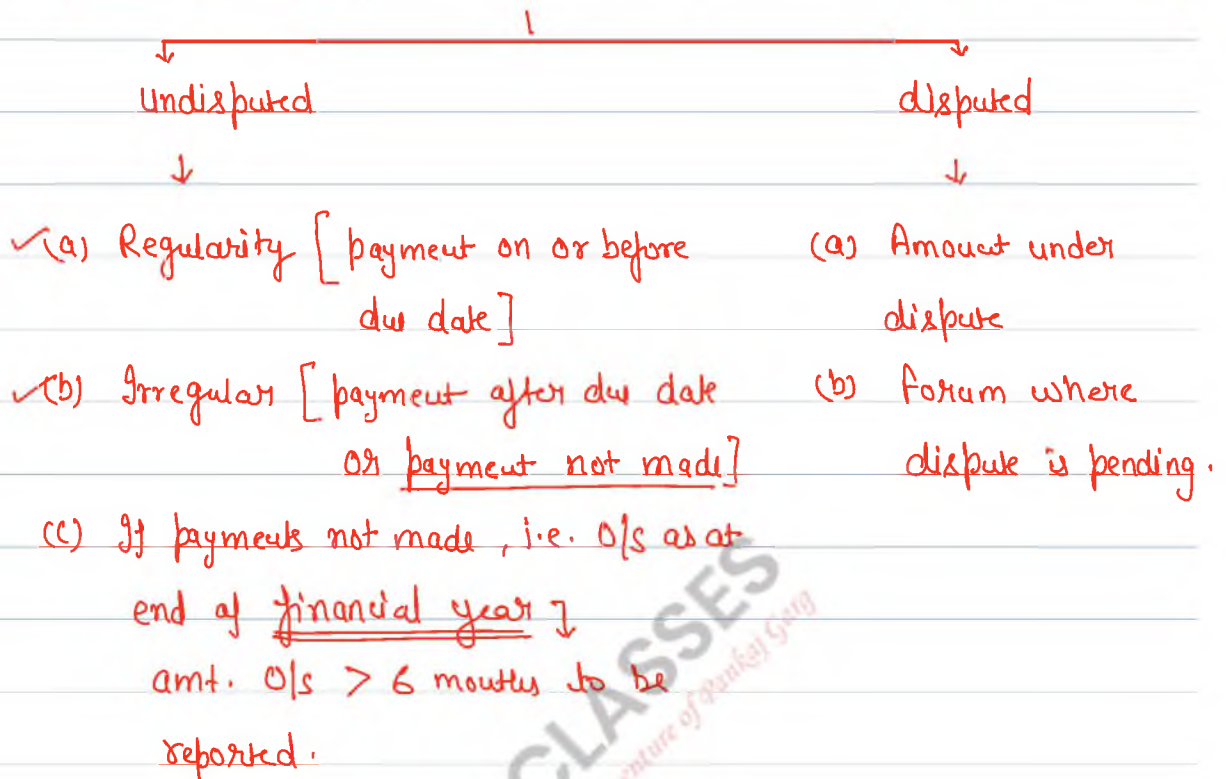 Undisputed
disputed
(a) Regularity [payment on or before
due date]
(b) Irregular [payment after due date
or payment not made]
(c) If payments not made, i.e. O/s as at
end of financial year
amt. O/s > 6 months to be
reported.
(a) Amount under
dispute
(b) Forum where
dispute is pending.
CLASSES
venture of Pankaj Garg